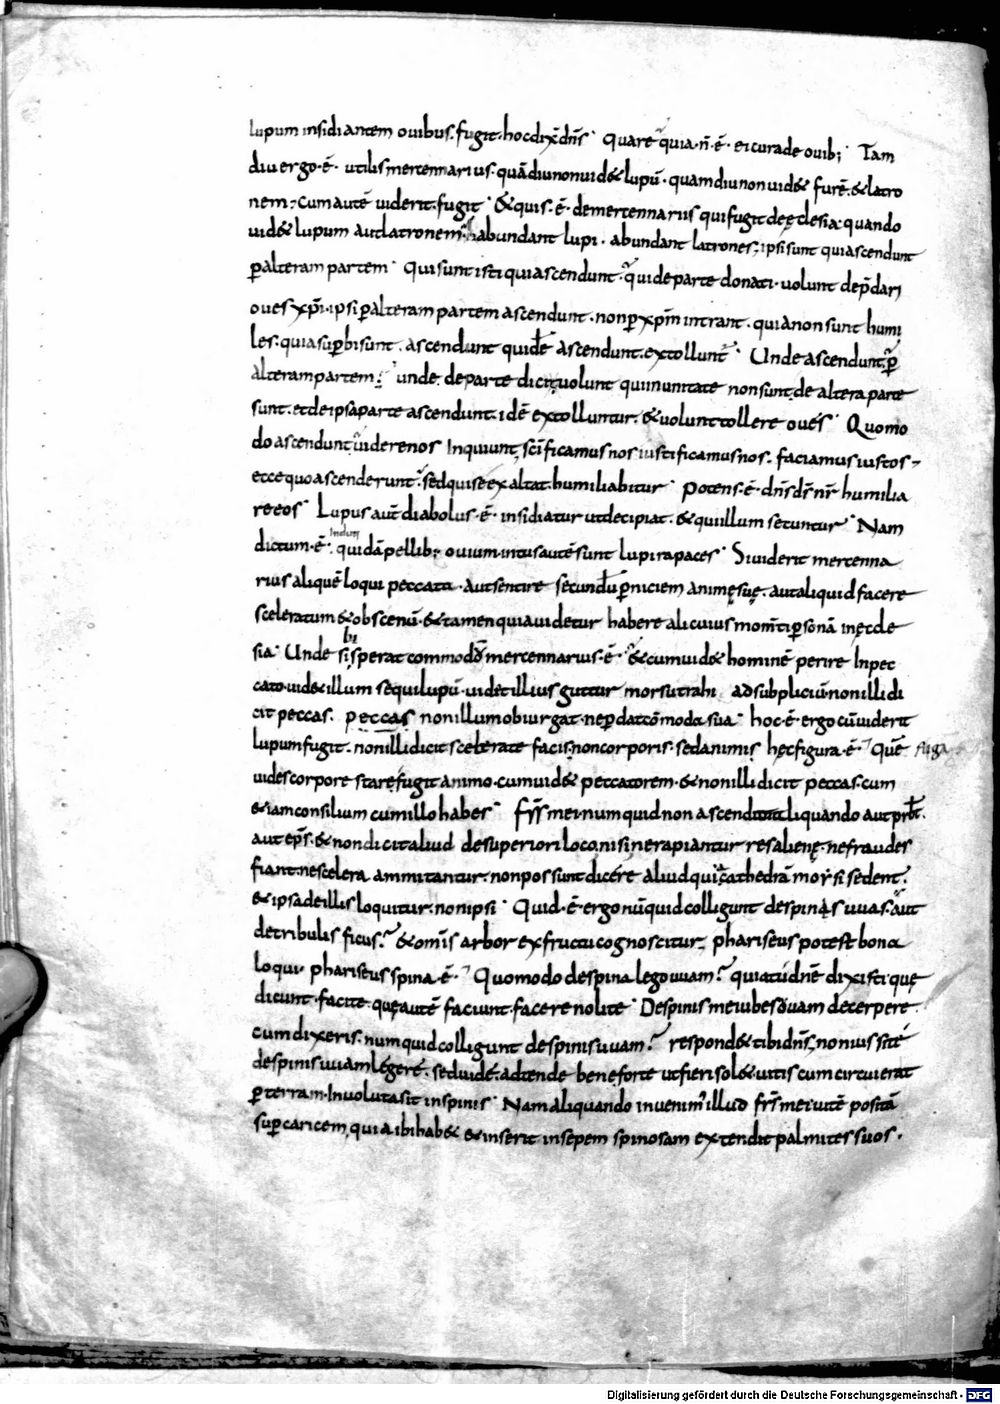 lupum insidiantem ovibus. fugit. hoc dix̄ dn̄s. Quare quia n̄ ē. ei cura de ovib; Tam
diu ergo ē. utilis mercennarius. quādiu non uid& lupū. quamdiu non uid& furē. & latro
nem. cum autē uiderit. fugit. & quis. ē. de mercennariis qui fugit de ęclesia. quando
uid& lupum aut latronem. habundant lupi. abundant latrones. ipsi sunt qui ascendunt
ꝑ alteram partem. Qui sunt isti qui ascendunt. qui de parte donati. uolunt dep̄dari
oues xp̄i. ipsi ꝑ alteram partem ascendunt. non ꝑ xp̄m intrant. quia non sunt humi
les. quia suꝑbi sunt. ascendunt. quid ē ascendunt. extollunt. Unde ascendunt. ꝑ
alteram partem. unde. de parte dicit uolunt qui in unitate non sunt. de altera parte
sunt. et de ipsa parte ascendunt. id ē extolluntur. & uolunt tollere oues. Quomo
do ascendunt uidere nos Inquiunt, sc̄ificamus nos iustificamus nos. faciamus iustos
ecce quo ascenderunt. sed qui se exaltat. humiliabitur. Potens. ē. dn̄s ds̄ nr̄ humilia
re eos. Lupus aut̄ diabolus. ē. insidiatur ut decipiat. & qui illum secuntur. Nam
dictum. ē. quidā pellib; ouium. intus autē sunt lupi rapaces. Si uiderit mercenna
rius aliquē loqui peccata. aut sentire secundū ꝑniciem animę suę. aut aliquid facere
sceleratum & obscenū. & tamen quia uidetur habere alicuius mom̄ti ꝑsonā in ęcle
sia. Unde si sperat commodū mercennarius. ē. & cum uid& hominē perire In pec
cato. uid& illum sequi lupū. uidet illius guttur morsu trahi ad subpliciū non illi di
cit peccas. peccas non illum obiurgat. ne ꝑdat cōmoda sua. hoc. ē. ergo cū uiderit
lupum fugit. non illi dicit scelerate facis. non corporis. sed animis hęc figura. ē. Quē fuga
uides corpore stare fugit animo. cum uid& peccatorem. & non illi dicit peccas. cum
etiam consilium cum illo habes. Fr̄s mei numquid non ascendit aliquando aut prb̄t.
aut ep̄s. & non dicit aliud de superiori loco. nisi ne rapiantur res alienę. ne fraudes
fiant. ne scelera ammitantur. non possunt dicere aliud qui cathedrā mosi sedent.
& ipsa de illis loquitur. non ipsi. Quid. ē. ergo nūquid colligunt de spinas uuas. aut
de tribulis ficus. & om̄is arbor ex fructu cognoscitur, phariseus potest bona
loqui. phariseus spina. ē. Quomodo de spina lego uuam. quia tu dn̄e dixisti. quę
dicunt. facite. quę autē faciunt. facere nolite. De spinis me iubes uuam decerpere
cum dixeris. numquid colligunt de spinis uuam. respond& tibi dn̄s, non ius sit ē
de spinis uuam legere. sed uide. adtende bene forte ut fieri sol& uitis cum circuierat
ꝑ terram. Inuoluta sit in spinis. Nam aliquando inuenim' illud fr̄s mei uitē positā
suꝑ caricem, quia ibi hab& & inserit in sepem spinosam extendit palmites suos.
Digitalisierung gefördert durch die Deutsche Forschungsgemeinschaft - DFG